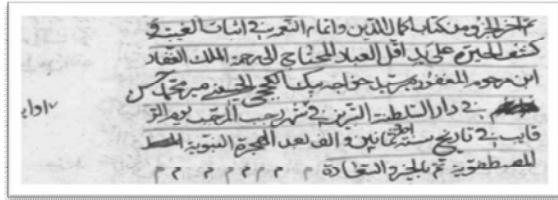 تم آخر الجزو من كتاب اكمال الدين و اتمام النعمة في اثبات الغيبة و
كشف الحيرة على يد اقل العباد المحتاج الى رحمة الملك الغفار
ابن مرحوم المغفور سيد خواجه بيك الكججي الحسيني مير محمد حسن
في دار السلطنة التبريز في شهر رجب المرجب يوم الر
قايب في تاريخ سنة ثمانين و الف بعد الهجرة النبوية
المصطفوية تم بالخير و السعادة م م م م م م